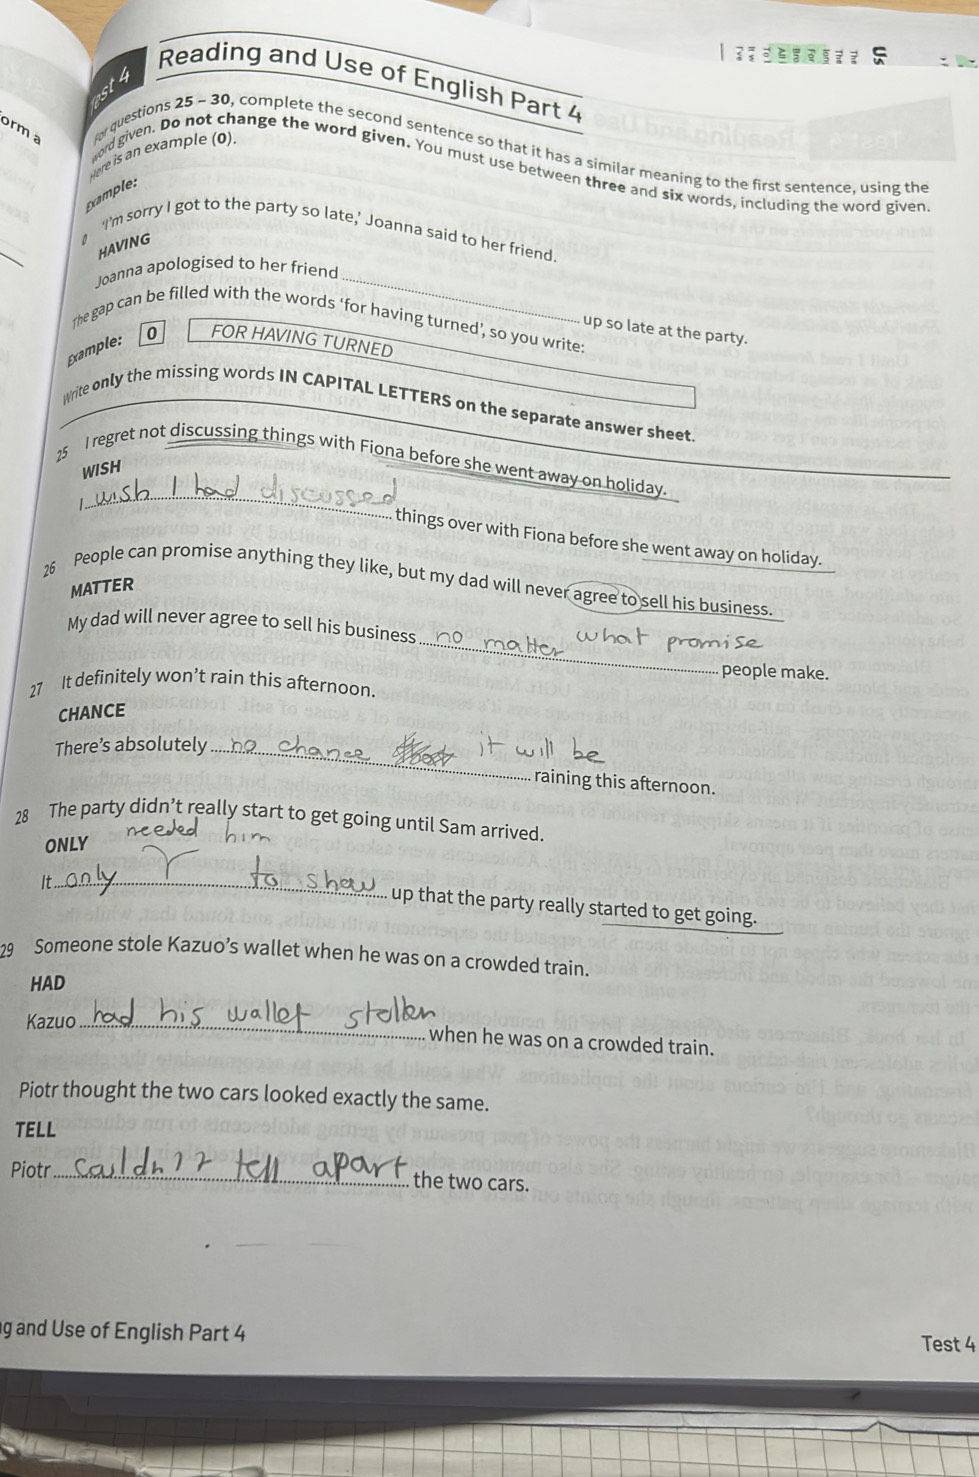 Test 4
Reading and Use of English Part 4
For questions 25 – 30, complete the second sentence so that it has a similar meaning to the first sentence, using the
word given. Do not change the word given. You must use between three and six words, including the word given.
Here is an example (0).
Example:
0 'I'm sorry I got to the party so late,' Joanna said to her friend.
HAVING
Joanna apologised to her friend up so late at the party.
The gap can be filled with the words 'for having turned', so you write:
Example: 0 FOR HAVING TURNED
Write only the missing words IN CAPITAL LETTERS on the separate answer sheet.
25 I regret not discussing things with Fiona before she went away on holiday.
WISH
I wish I had discussed things over with Fiona before she went away on holiday.
26 People can promise anything they like, but my dad will never agree to sell his business.
MATTER
My dad will never agree to sell his business no matter what promise people make.
27 It definitely won't rain this afternoon.
CHANCE
There's absolutely no chance it will be raining this afternoon.
28 The party didn't really start to get going until Sam arrived.
ONLY
needed him
It only to show up that the party really started to get going.
29 Someone stole Kazuo's wallet when he was on a crowded train.
HAD
Kazuo had his wallet stollen when he was on a crowded train.
Piotr thought the two cars looked exactly the same.
TELL
Piotr couldn't tell apart the two cars.
g and Use of English Part 4
Test 4
orm a